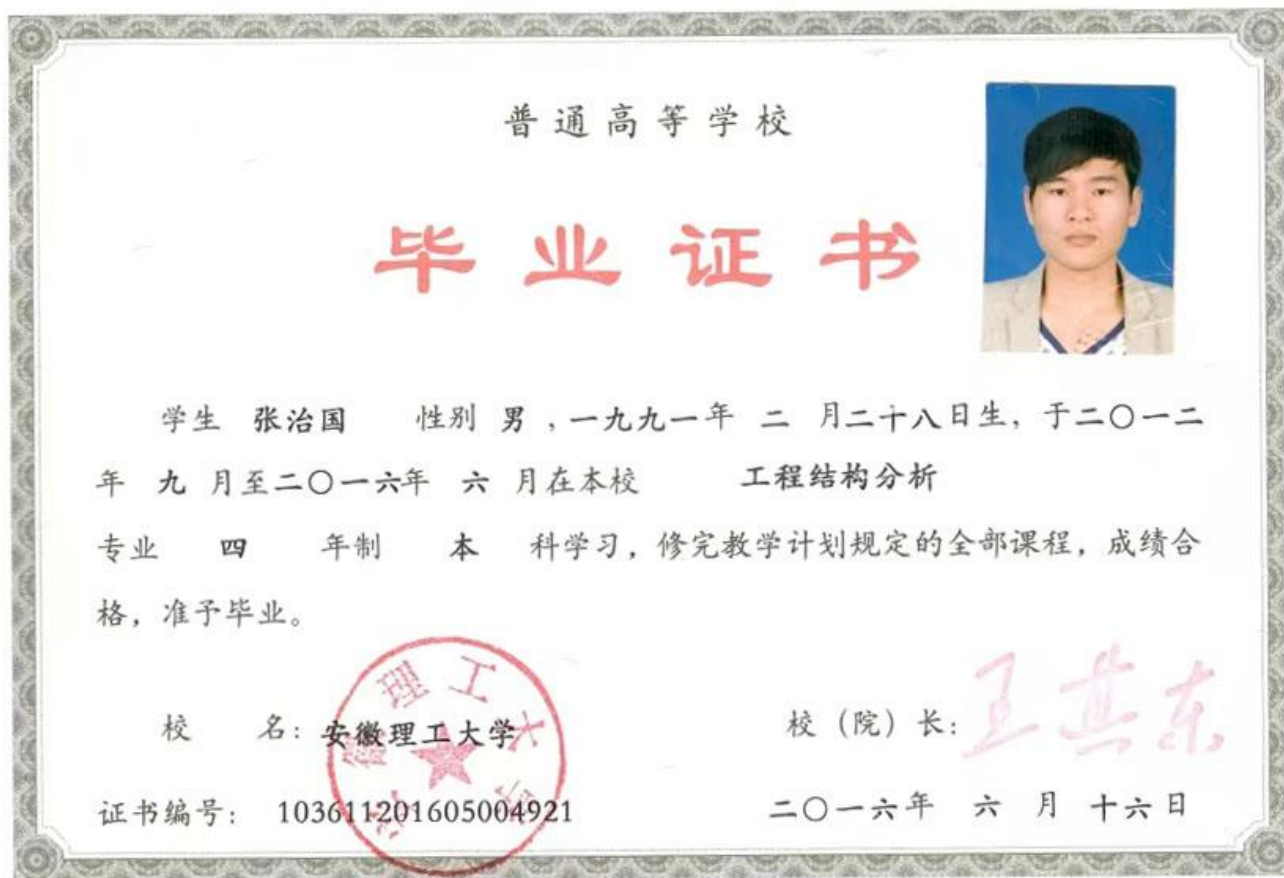 普通高等学校
毕业证书
学生 张治国 性别 男，一九九一年 二 月二十八日生，于二〇一二
年 九 月至二〇一六年 六 月在本校 工程结构分析
专业 四 年制 本 科学习，修完教学计划规定的全部课程，成绩合
格，准予毕业。
校 名：安徽理工大学
校（院）长：王其东
证书编号：103611201605004921
二〇一六年 六 月 十六日
安徽理工大学